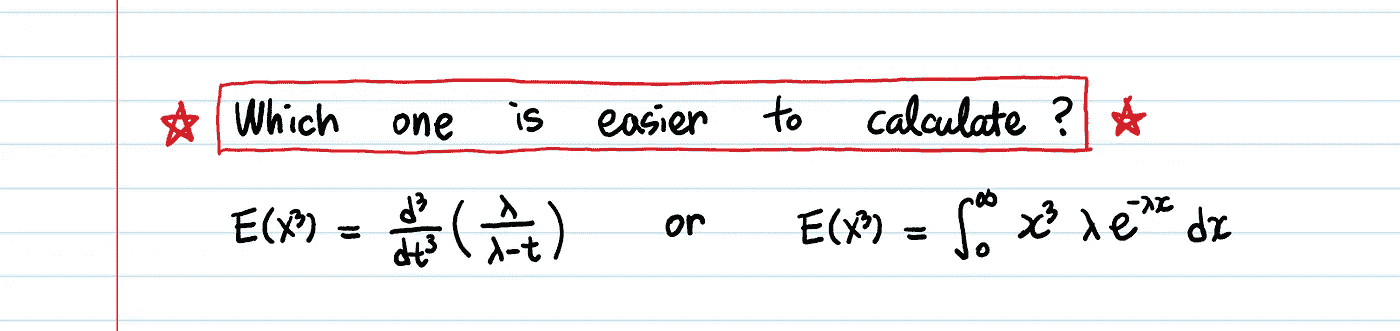 ☆ Which one is easier to calculate? ☆
E(X³) = d³/dt³ (λ/λ-t) or E(X³) = ∫₀^∞ x³ λe^-λx dx